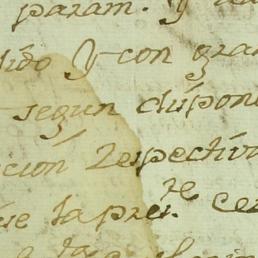 param. Y
dido Y con gra
segun dispon
cion Respectiva
que la pres.te ce